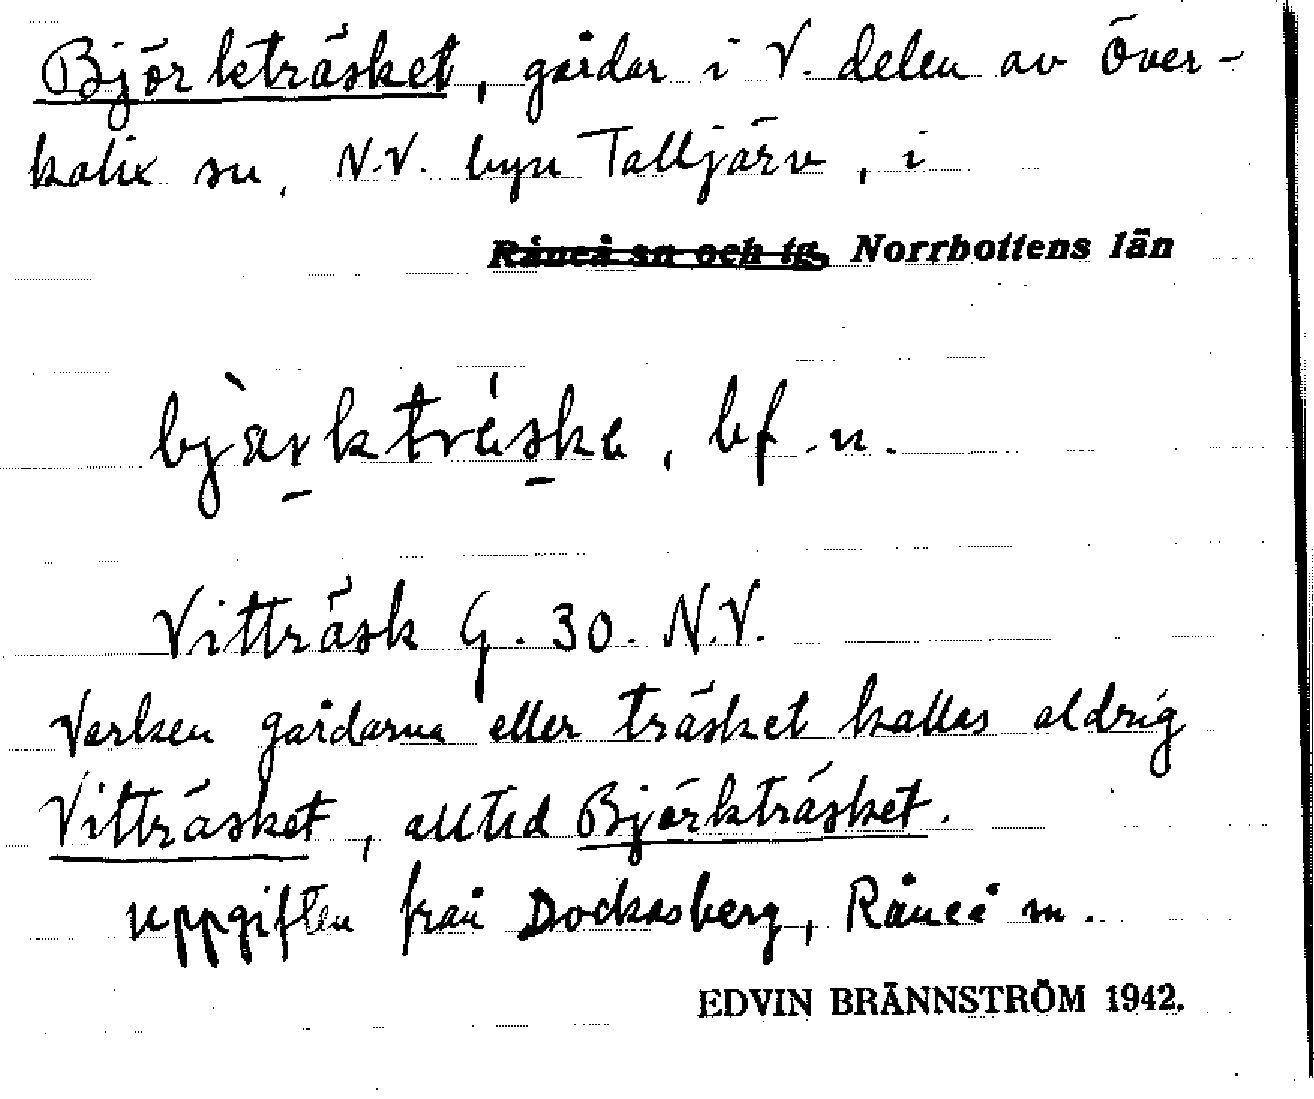 Björkträsket, gårdar i V. delen av Över-
kalix sn, N.V. byn Talljärv, i
Råneå sn och tg, Norrbottens län
bjærktræska, bf. n.
Vitträsk G. 30. N.V.
Varken gårdarna eller träsket kallas aldrig
Vitträsket, alltid Björkträsket.
uppgiften från Dockasberg, Råneå sn.
EDVIN BRÄNNSTRÖM 1942.